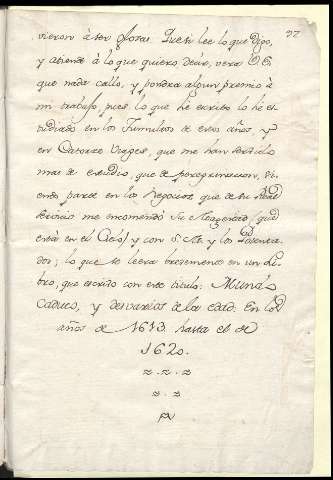 37
vieron à ser glosas. Quien lee lo que digo,
y atiende à lo que quiero decir, verà V.E.
que nada callo, y pondrà algun premio à
mi trabajo, pues lo que hè escrito lo hè es-
tudiado en los Tumultos de estos años, y
en Catorze Viages, que me han servido
mas de estudio, que de peregrinacion, si-
endo parte en los Negocios que de su Real
servicio me encomendò Su Magestad (que
està en el Cielo) y con S. Sd. y los Potenta-
dos; lo que se leerà brevemente en un Li-
bro, que escribo con este titulo: Mundo
Caduco, y desvarios de la edad. En los
años de 1613. hasta el de
1620.